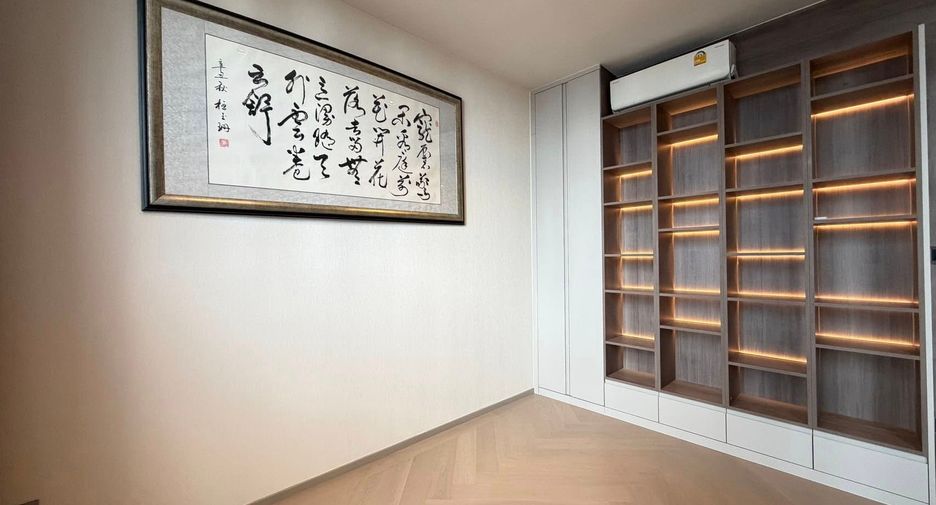 寵辱不驚
闲看庭前
花開花
落去留無
意漫随天
外雲卷
云舒
辛丑秋